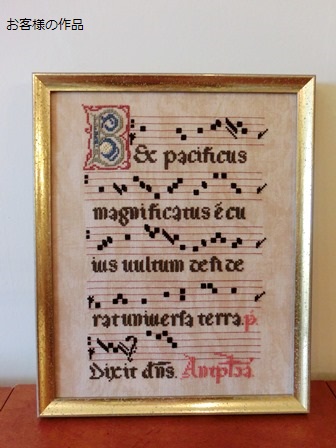 お客様の作品
Bex pacificus
magnificatus é cu
ius uultum desi de
rat uniuersa terra. p.
Dixit dñs.